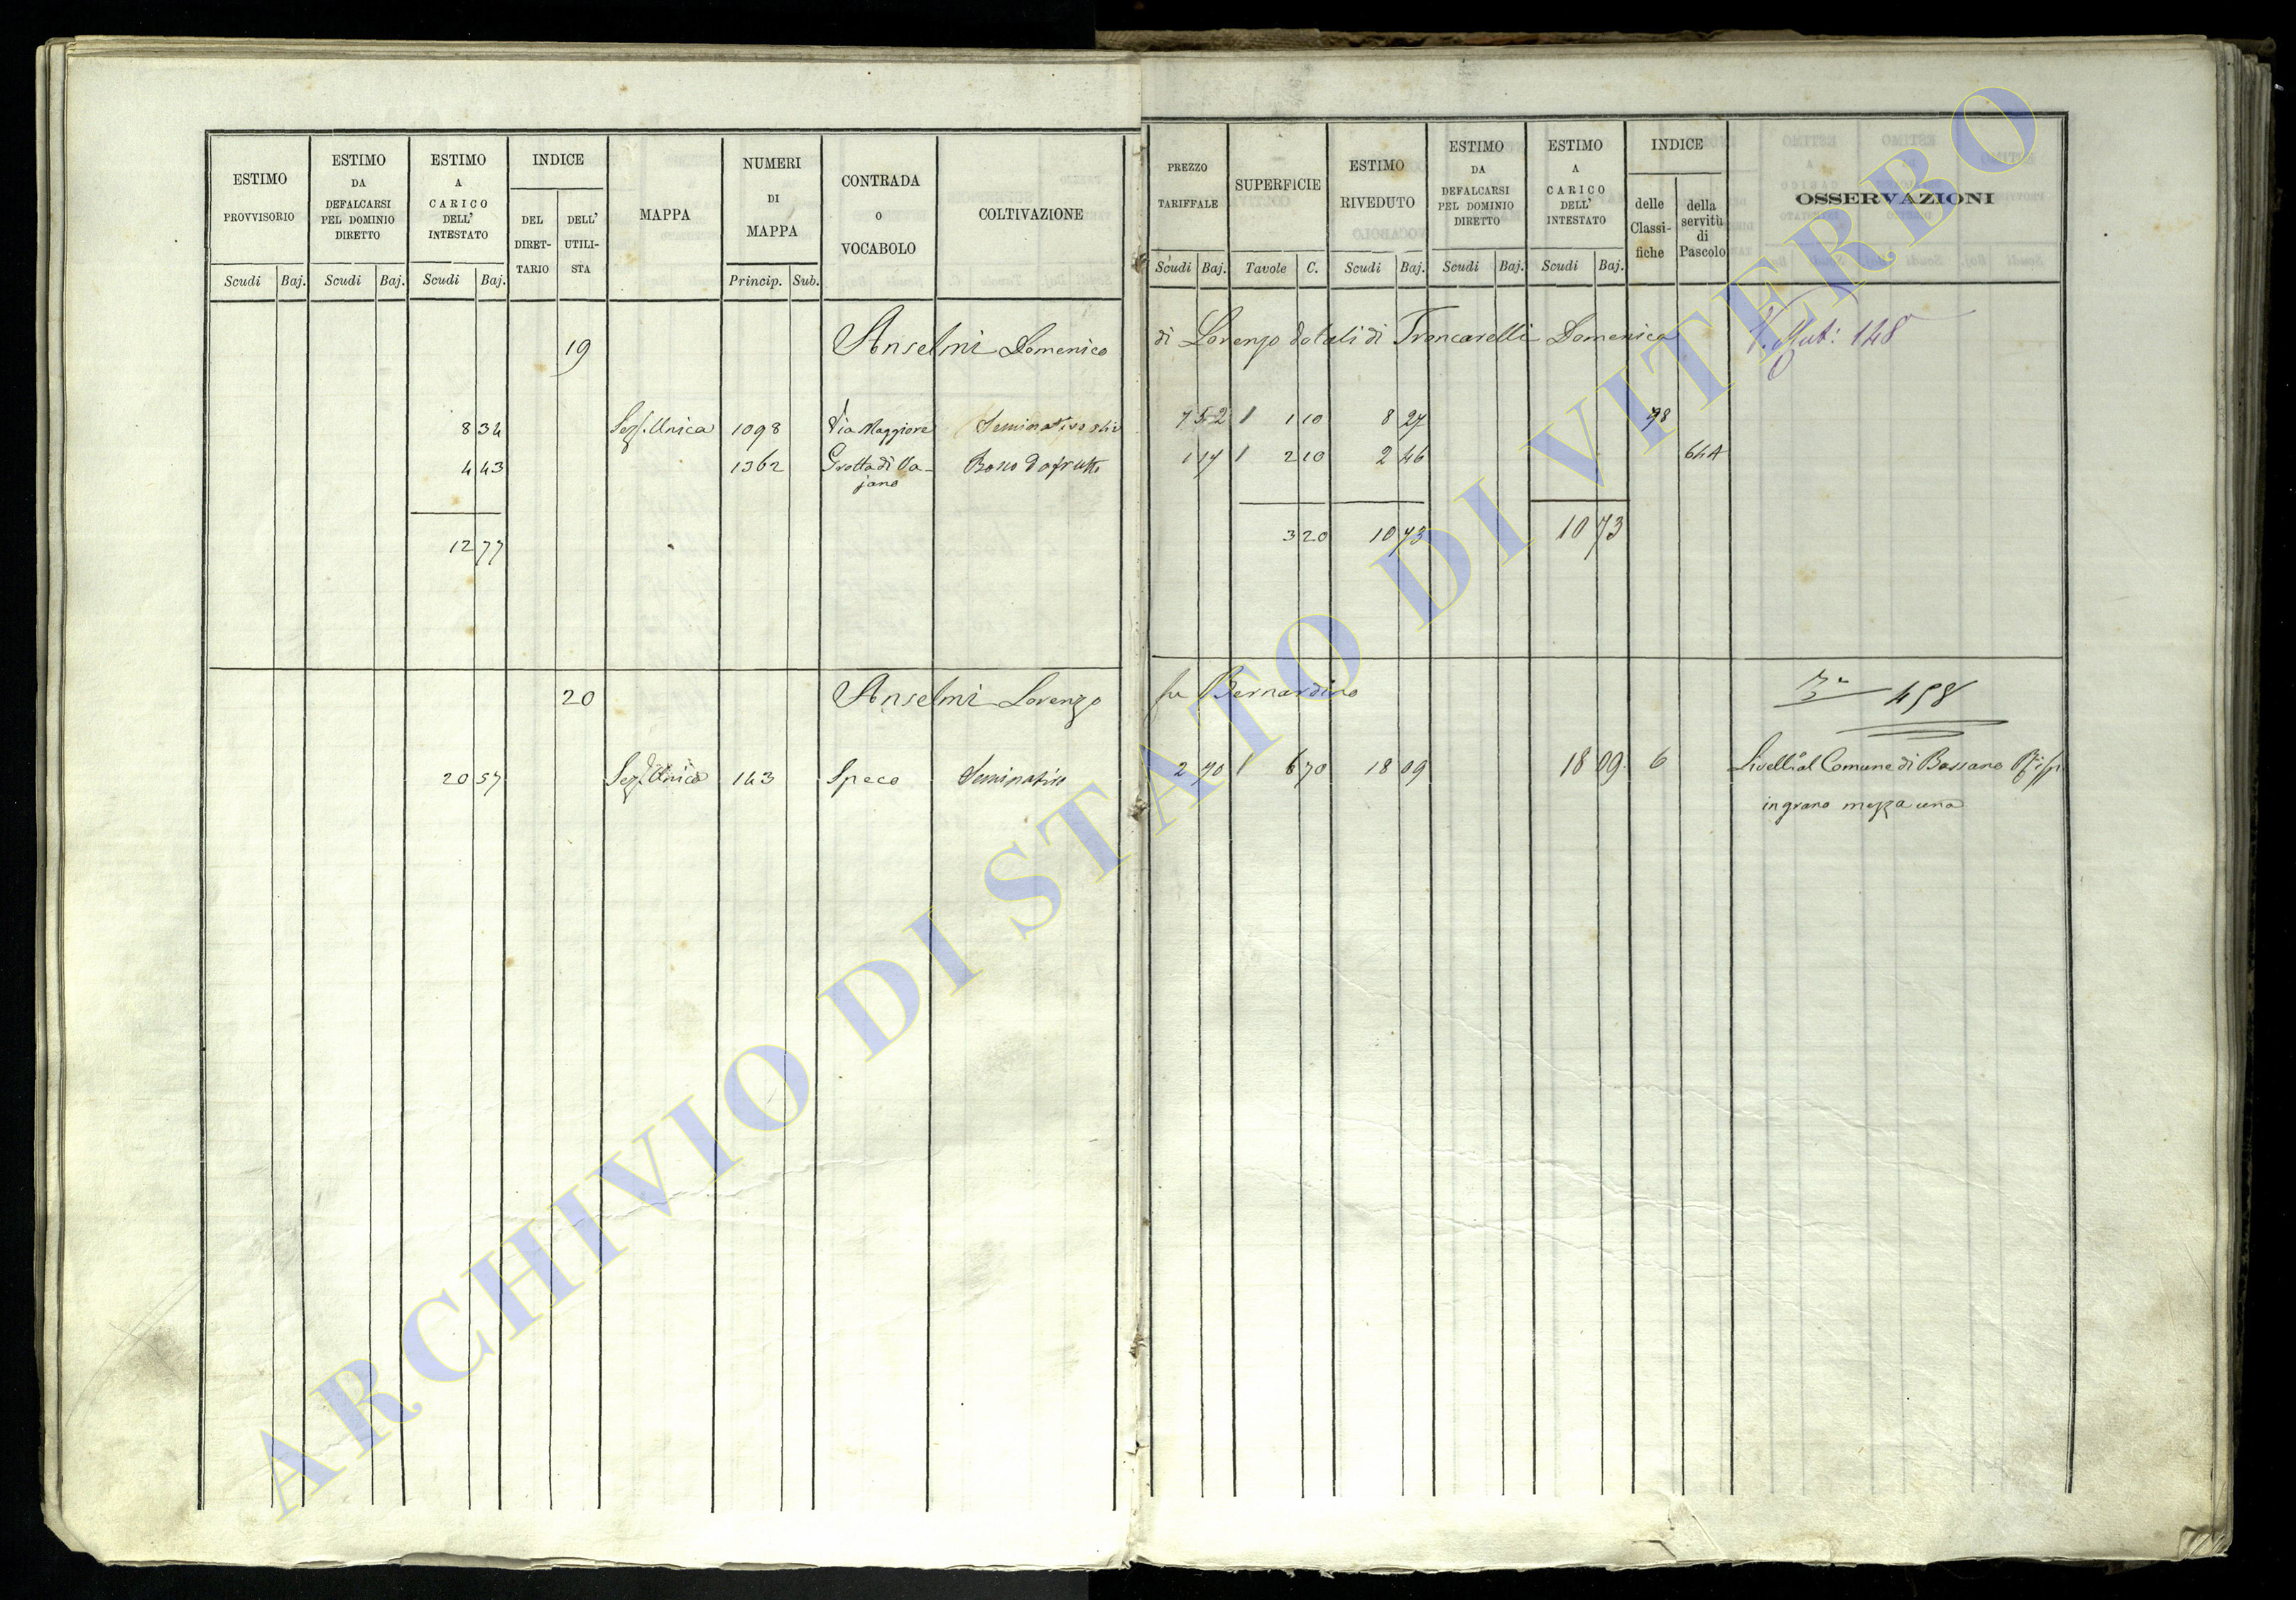 ESTIMO PROVVISORIO
Scudi Baj.
ESTIMO DA DEFALCARSI PEL DOMINIO DIRETTO
Scudi Baj.
ESTIMO A CARICO DELL' INTESTATO
Scudi Baj.
INDICE
DEL DIRET- TARIO
DELL' UTILI- STA
MAPPA
NUMERI DI MAPPA
Princip. Sub.
CONTRADA O VOCABOLO
COLTIVAZIONE
PREZZO TARIFFALE
Scudi Baj.
SUPERFICIE
Tavole C.
ESTIMO RIVEDUTO
Scudi Baj.
ESTIMO DA DEFALCARSI PEL DOMINIO DIRETTO
Scudi Baj.
ESTIMO A CARICO DELL' INTESTATO
Scudi Baj.
INDICE
delle Classi- fiche
della servitù di Pascolo
OSSERVAZIONI
19 Anselmi Domenico di Lorenzo dotali di Troncarelli Domenica 148
8 34 Sez. Unica 1098 Via Maggiore Seminativo 7 52 1 1 10 8 27 98
4 43 1362 Grotta di Va- Bosco da frutto 1 17 1 2 10 2 46 644
jano
12 77 3 20 10 73 10 73
20 Anselmi Lorenzo fu Bernardino 458
20 57 Sez. Unica 143 Speco Seminativo 2 70 1 6 70 18 09 18 09 6 Livell. al Comune di Bassano
in grano mezza una
ARCHIVIO DI STATO DI VITERBO